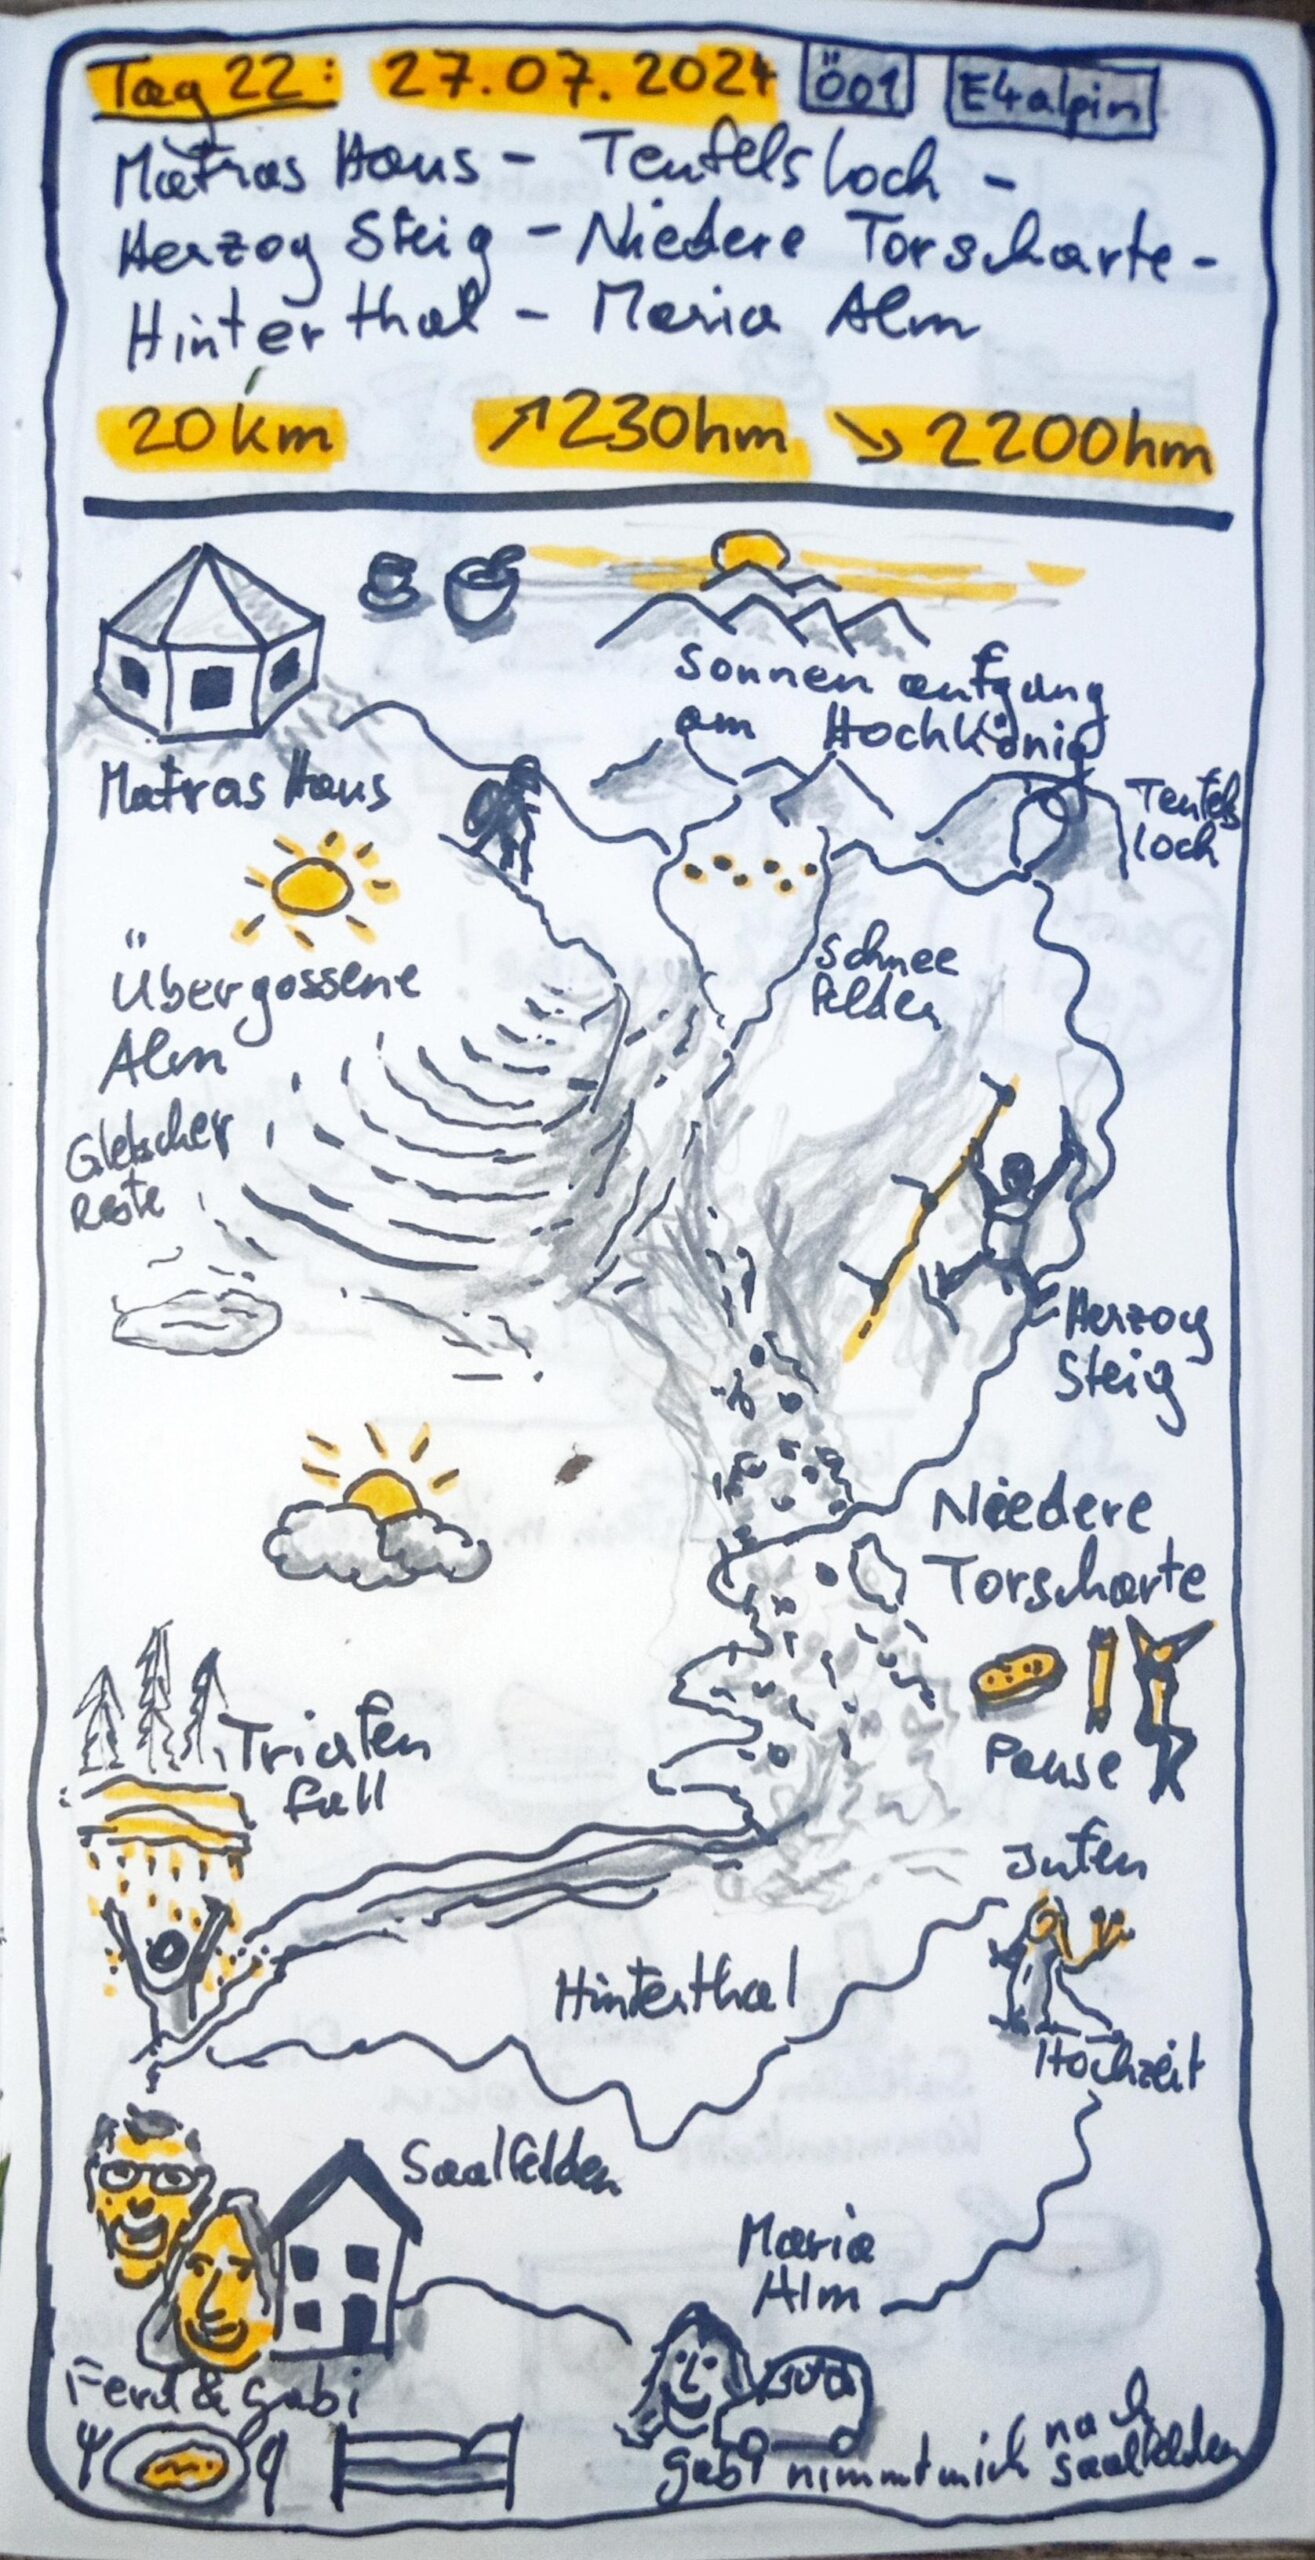 Tag 22: 27.07.2024 Ö01 E4alpin
Matras Haus - Teufelsloch -
Herzog Steig - Niedere Torscharte -
Hinterthal - Maria Alm
20km ↗1230hm ↘2200hm
Sonnenaufgang
am Hochkönig
Matras Haus
Teufels
loch
Übergossene
Alm
Schnee
felder
Gletscher
reste
Herzog
Steig
Niedere
Torscharte
Triefen
fall
Pause
Juten
Hinterthal
Hochzeit
Saalfelden
Maria
Alm
Ferdl & Gabi
Gabi nimmt mich nach
Saalfelden